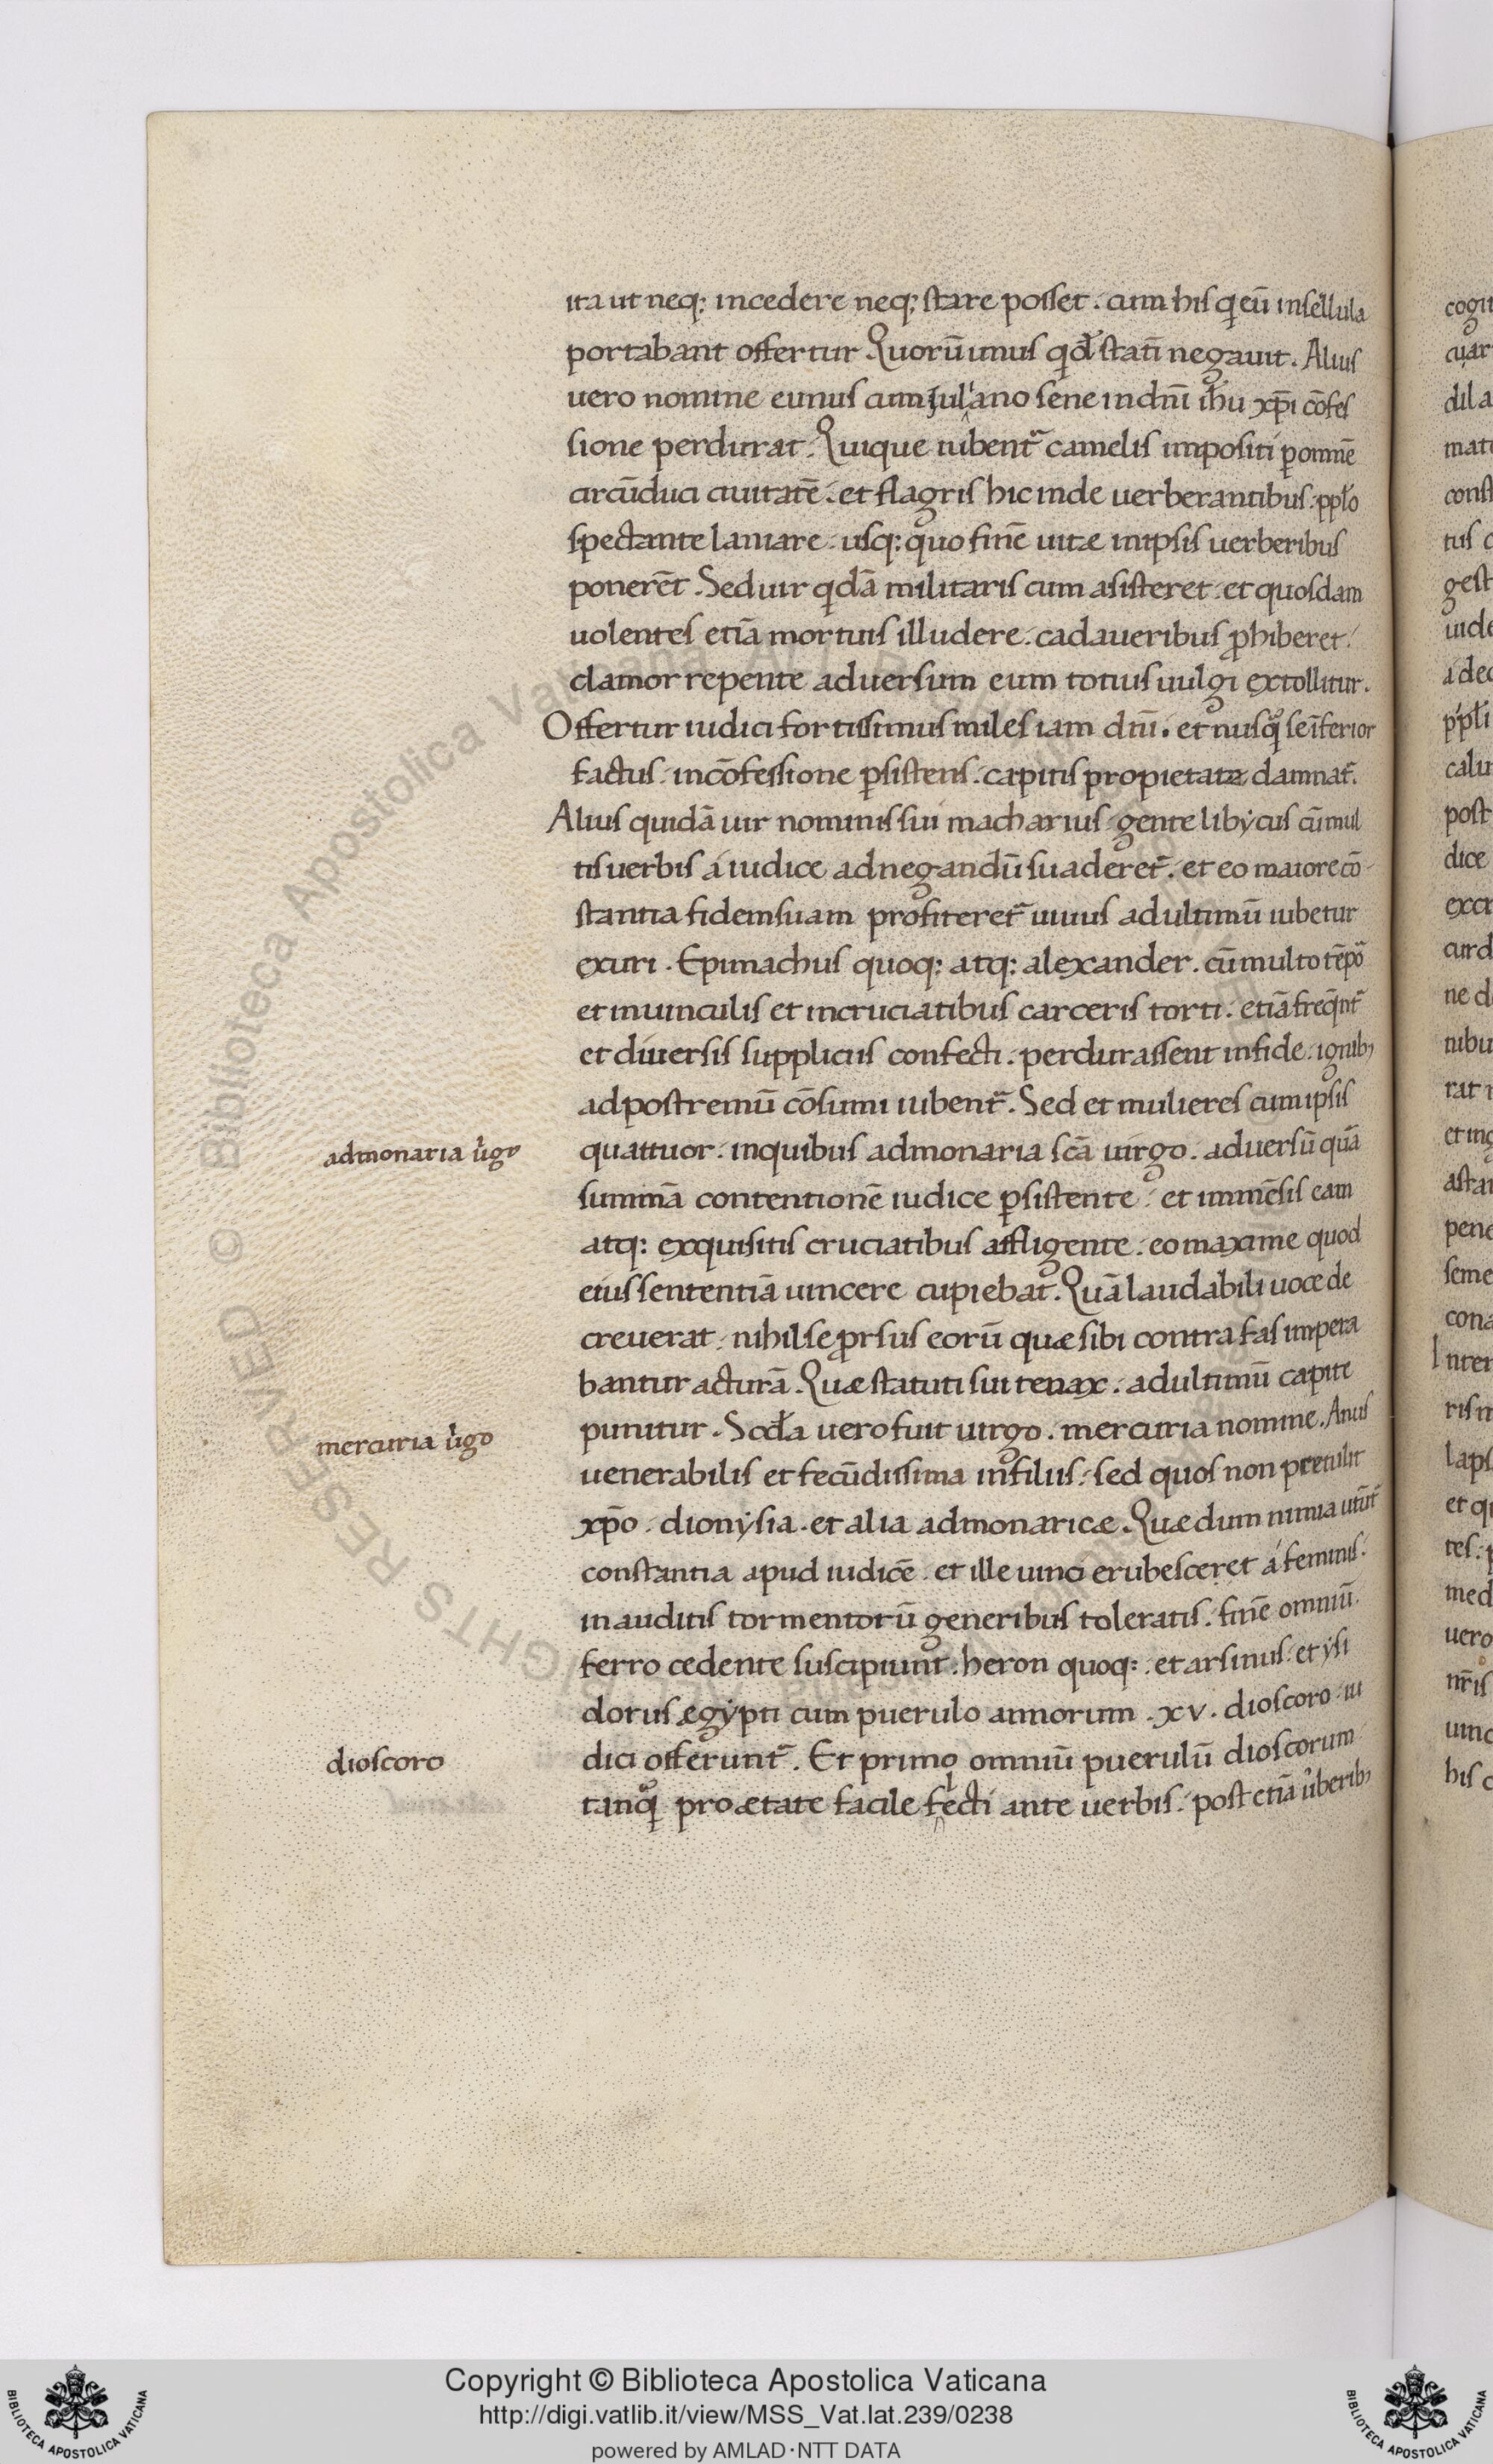 ita ut neq; incedere neq; stare posset. cum his q eū in sellula
portabant offertur. Quorū unus qdē statī negauit. Alius
uero nomine eunus cum iuliano sene in dnī ihu xp̄i cōfes
sione perdurat. Quique iubent᷑ camelis impositi p omnē
circūduci ciuitatē. et flagris hic inde uerberantibus. ppło
spectante laniare. usq; quo finē uitæ in ipsis uerberibus
ponerēt. Sed uir qdā militaris cum asisteret. et quosdam
uolentes etiā mortuis illudere. cadaueribus ꝓhiberet.
clamor repente aduersum eum totius uulgi extollitur.
Offertur iudici fortissimus miles iam dnī. et nusq̊ se īferior
factus. in cōfessione ꝑsistens. capitis pro pietate damnat᷑.
Alius quidā uir nominis sui macharius gente libẏcus cū mul
tis uerbis á iudice ad negandū suaderet᷑. et eo maiore cō
stantia fidem suam profiteret᷑ uiuus ad ultimū iubetur
exuri. Epimachus quoq; atq; alexander. cū multo tēpō
et in uinculis et in cruciatibus carceris torti. etiā freq̄nt᷑
et diuersis suppliciis confecti. perdurassent in fide. ignib;
ad postremū cōsumi iubent᷑. Sed et mulieres cum ipsis
admonaria ůgo
quattuor. in quibus admonaria scā uirgo. aduersū quā
summā contentionē iudice ꝑsistente. et immēsis eam
atq; exquisitis cruciatibus affligente. eo maxime quod
eius sententiā uincere cupiebat. Quā laudabili uoce de
creuerat. nihil se ꝓrsus eorū quæ sibi contra fas impera
bantur acturā. Quæ statuti sui tenax. ad ultimū capite
mercuria ůgo
punitur. Scđa uero fuit uirgo. mercuria nomine. Anus
uenerabilis et fecūdissima in filiis. sed quos non pretulit
xp̄o. dionẏsia. et alia admonaricæ. Quæ dum nimia utūt᷑
constantia apud iudicē. et ille uinci erubesceret á feminis.
inauditis tormentorū generibus toleratis. finē omniū.
ferro cedente suscipiunt. heron quoq; et arsinus. et ẏsi
dorus ægẏpti cum puerulo annorum .xv. dioscoro iu
dioscoro
dici offerunt᷑. Et primo omniū puerulū dioscorum
tanq̊ pro ætate facile flecti ante uerbis. post etiā ůberib;
Copyright © Biblioteca Apostolica Vaticana
http://digi.vatlib.it/view/MSS_Vat.lat.239/0238
powered by AMLAD·NTT DATA